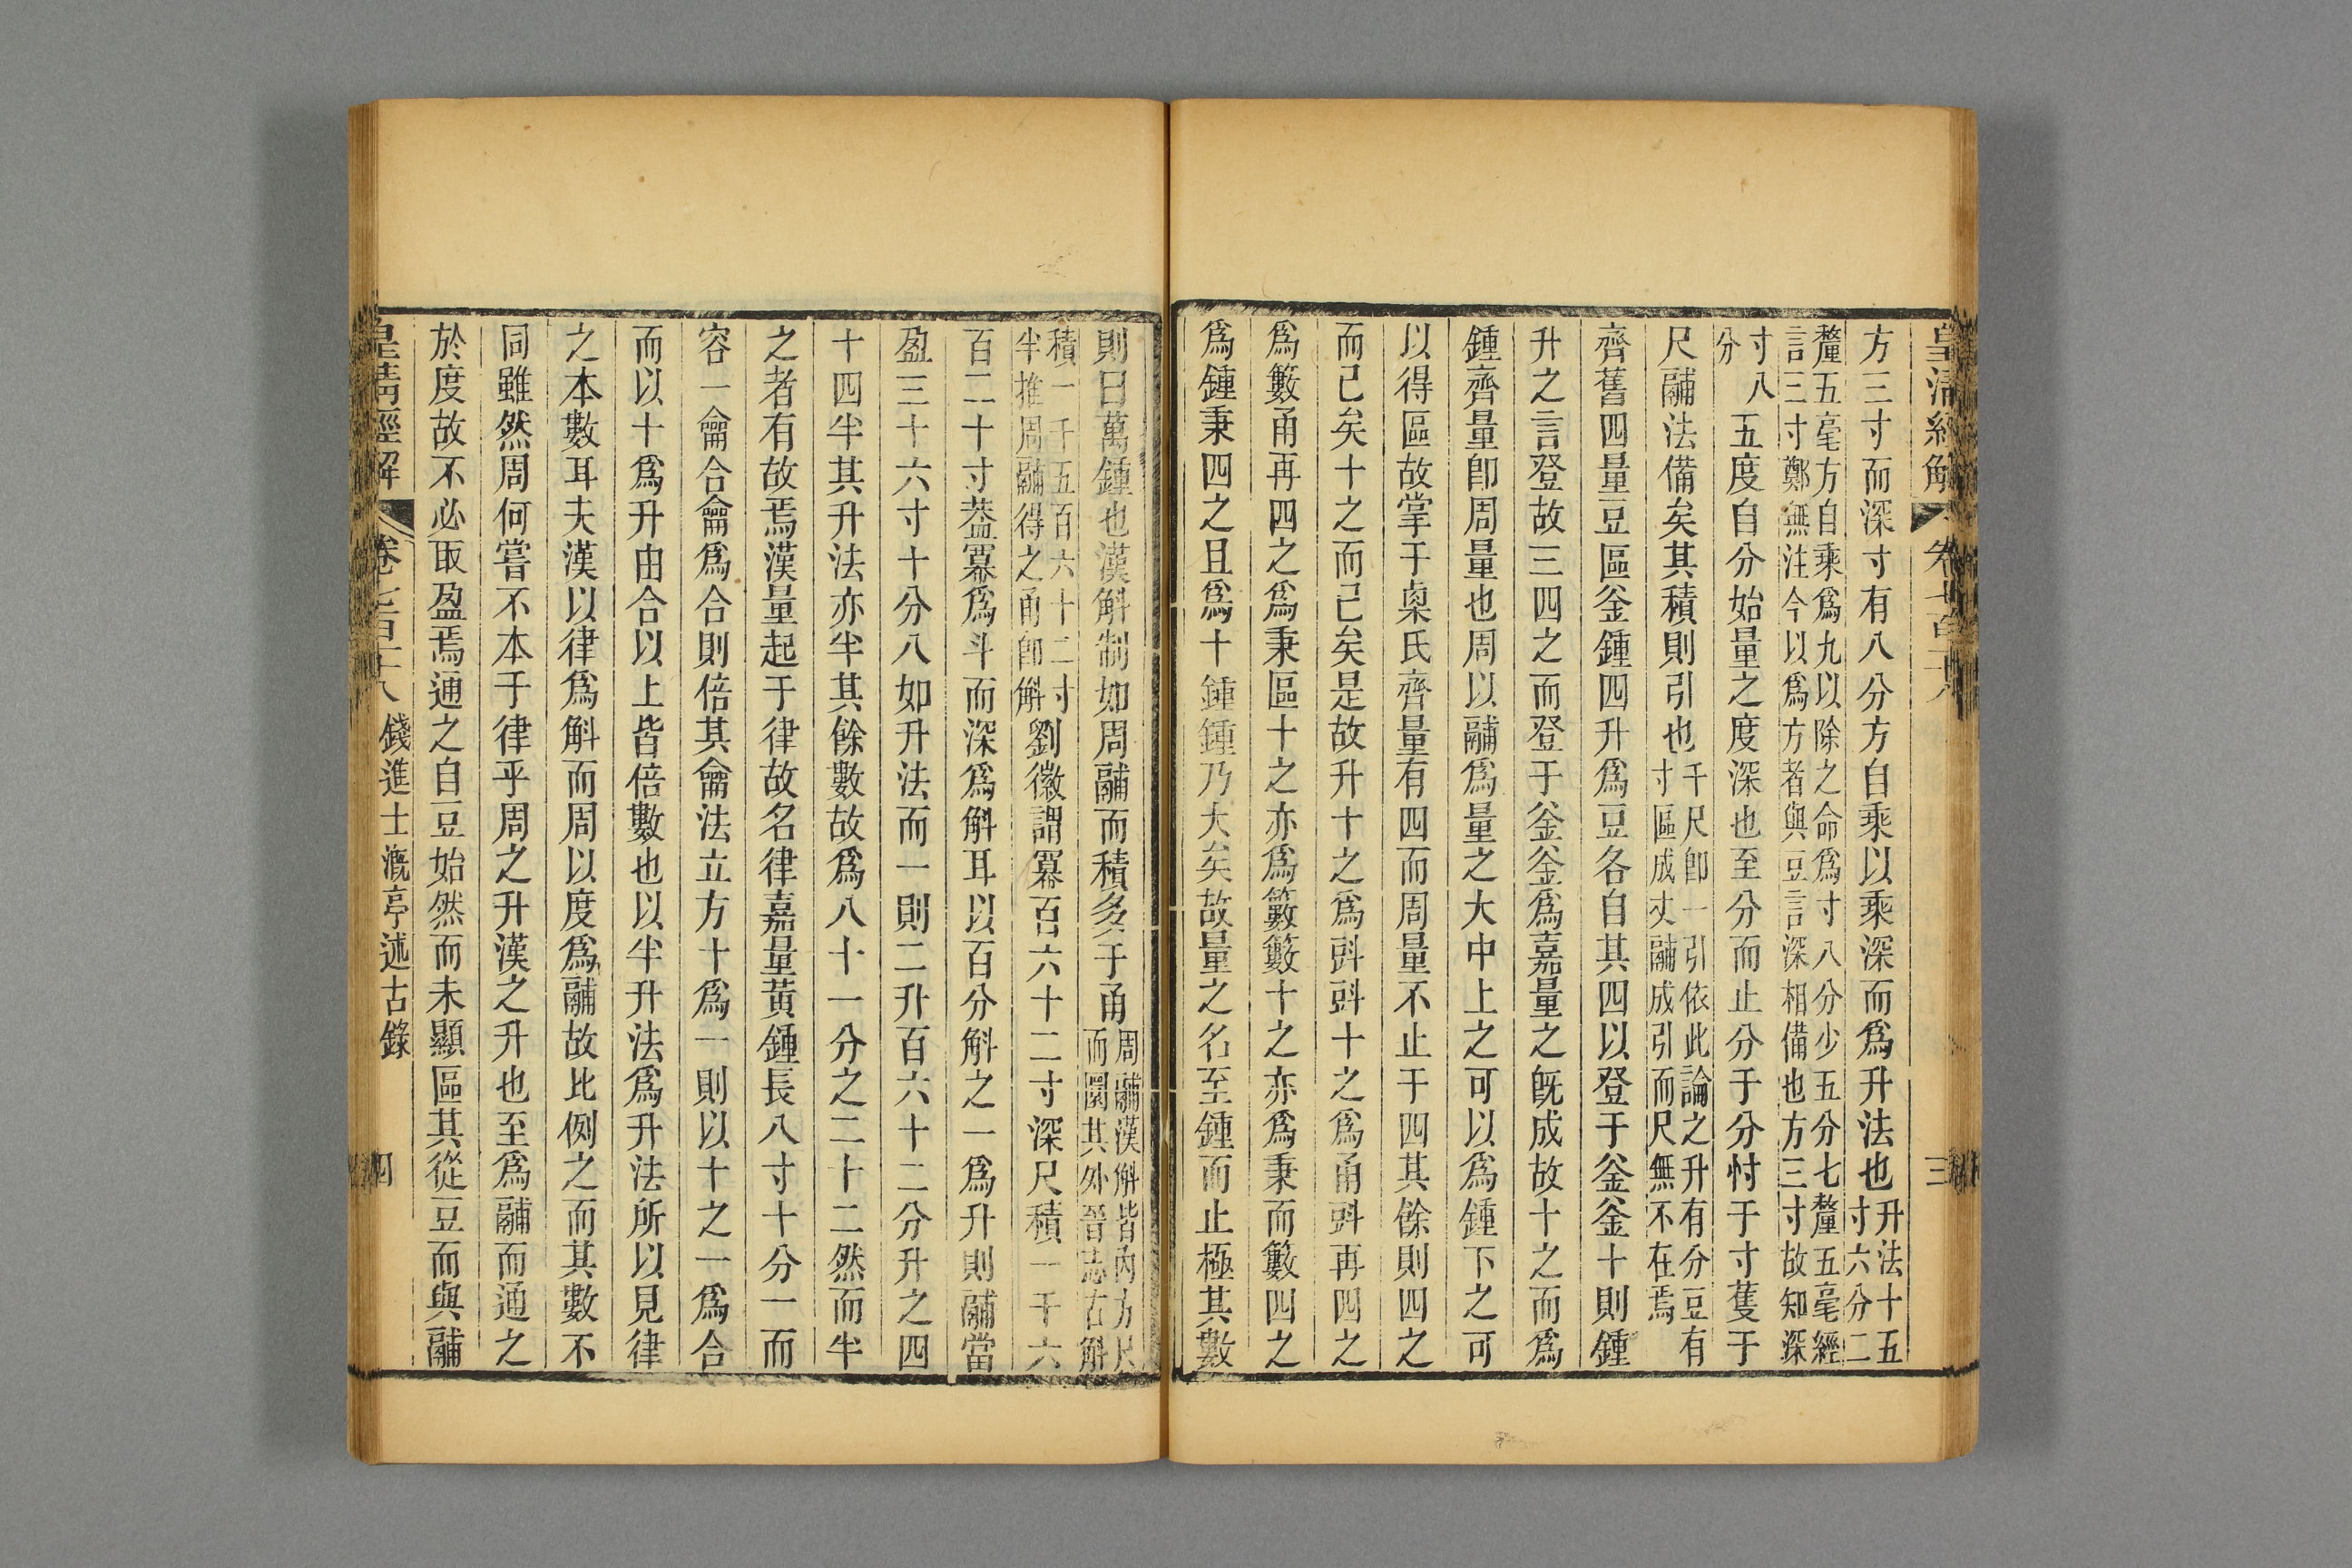 皇清經解
三
方三寸而深寸有八分方自乘以乘深而爲升法也升法十五寸六分二
釐五毫方自乘爲九以除之命爲寸八分少五分七釐五毫經言三寸鄭無注今以爲方者與豆言深相備也方三寸故知深
寸八分五度自分始量之度深也至分而止分于分忖于寸蒦于
尺鬴法備矣其積則引也千尺卽一引依此論之升有分豆有寸區成丈鬴成引而尺無不在焉
齊舊四量豆區釜鍾四升爲豆各自其四以登于釜釜十則鍾
升之言登故三四之而登于釜釜爲嘉量之旣成故十之而爲
鍾齊量卽周量也周以鬴爲量之大中上之可以爲鍾下之可
以得區故掌于㮚氏齊量有四而周量不止于四其餘則四之
而已矣十之而已矣是故升十之爲㪷㪷十之爲甬㪷再四之
爲籔甬再四之爲秉區十之亦爲籔籔十之亦爲秉而籔四之
爲鍾秉四之且爲十鍾鍾乃大矣故量之名至鍾而止極其數
則曰萬鍾也漢斛制如周鬴而積多于甬周鬴漢斛皆內方尺而圜其外晉志古斛
積一千五百六十二寸半推周鬴得之甬卽斛劉徽謂冪百六十二寸深尺積一千六
百二十寸葢冪爲斗而深爲斛耳以百分斛之一爲升則鬴當
盈三十六寸十分八如升法而一則二升百六十二分升之四
十四半其升法亦半其餘數故爲八十一分之二十二然而半
之者有故焉漢量起于律故名律嘉量黃鍾長八寸十分一而
容一龠合龠爲合則倍其龠法立方十爲一則以十之一爲合
而以十爲升由合以上皆倍數也以半升法爲升法所以見律
之本數耳夫漢以律爲斛而周以度爲鬴故比例之而其數不
同雖然周何嘗不本于律乎周之升漢之升也至爲鬴而通之
於度故不必取盈焉通之自豆始然而未顯區其從豆而與鬴
皇清經解
卷七百十八
錢進士漑亭述古錄
四